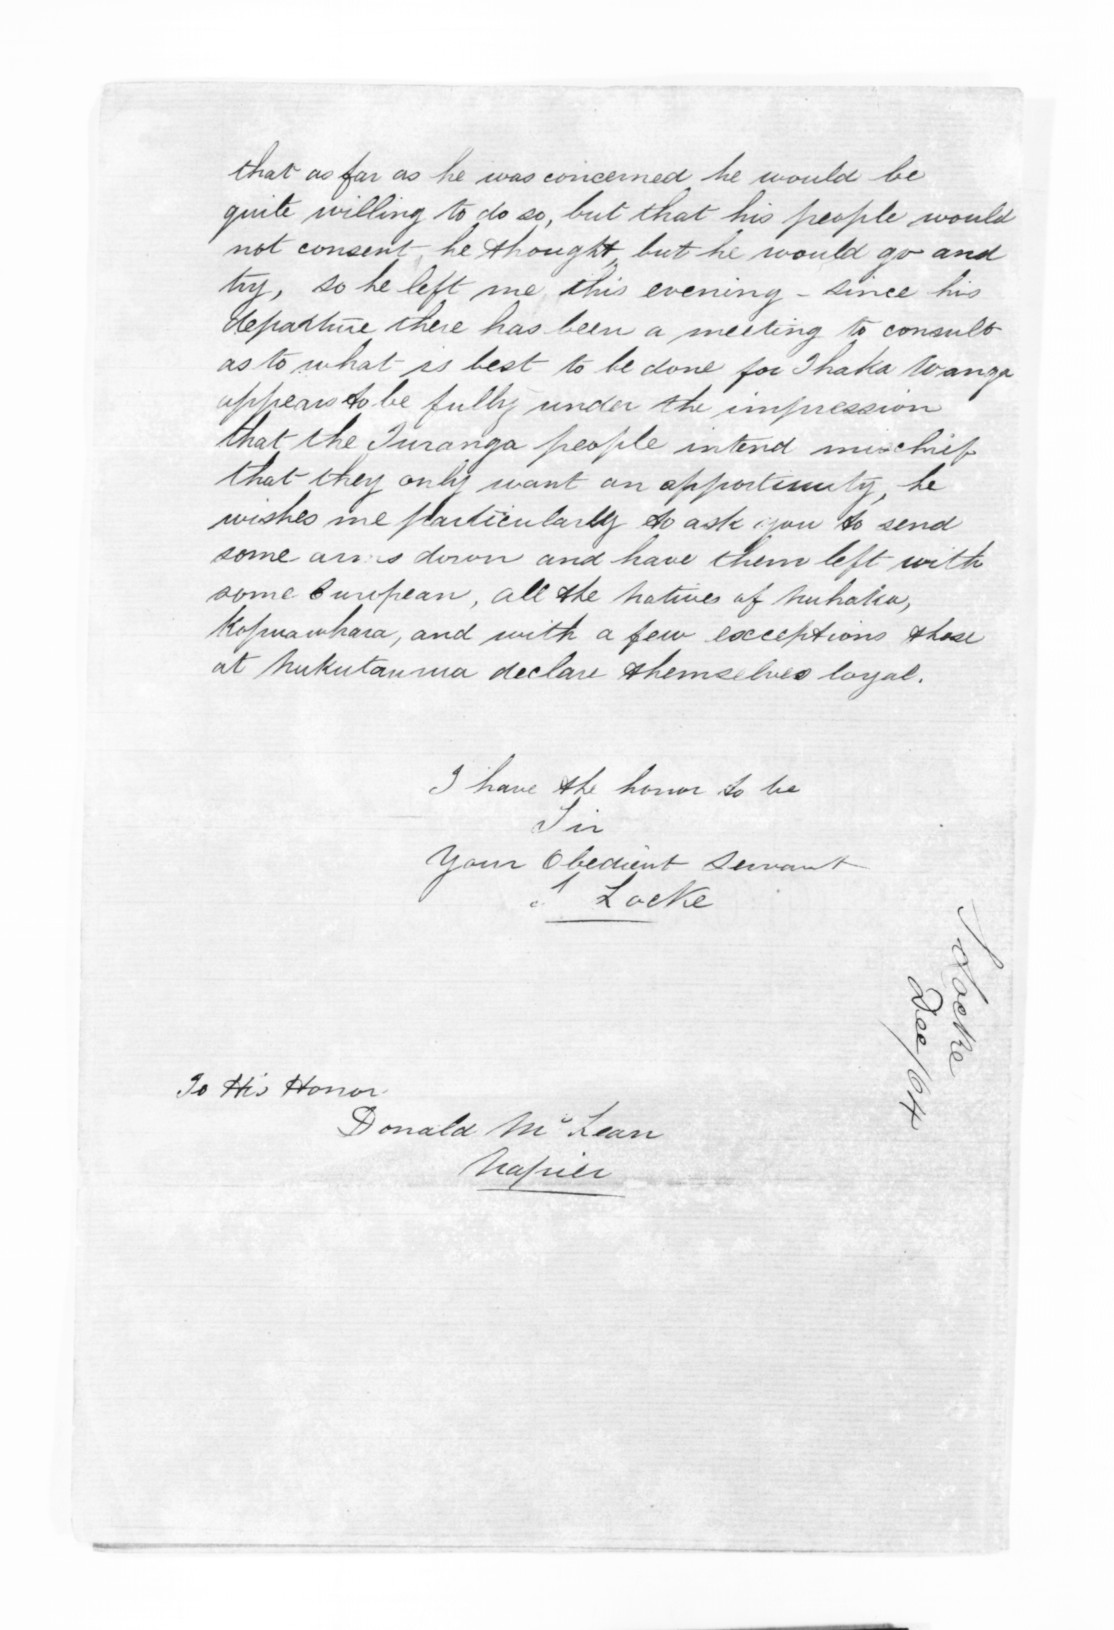 that as far as he was concerned he would be
quite willing to do so, but that his people would
not consent he thought, but he would go and
try, so he left me this evening - since his
departure there has been a meeting to consult
as to what is best to be done for Ihaka Wanga
appears to be fully under the impression
that the Turanga people intend mischief
that they only want an opportunity, he
wishes me particularly to ask you to send
some arms down and have them left with
some European, all the natives of Nuhaka,
Kopuawhara, and with a few exceptions those
at Nukutaurua declare themselves loyal.
I have the honor to be
Sir
Your Obedient Servant
S Locke
To His Honor
Donald McLean
Napier
S Locke
Dec/64